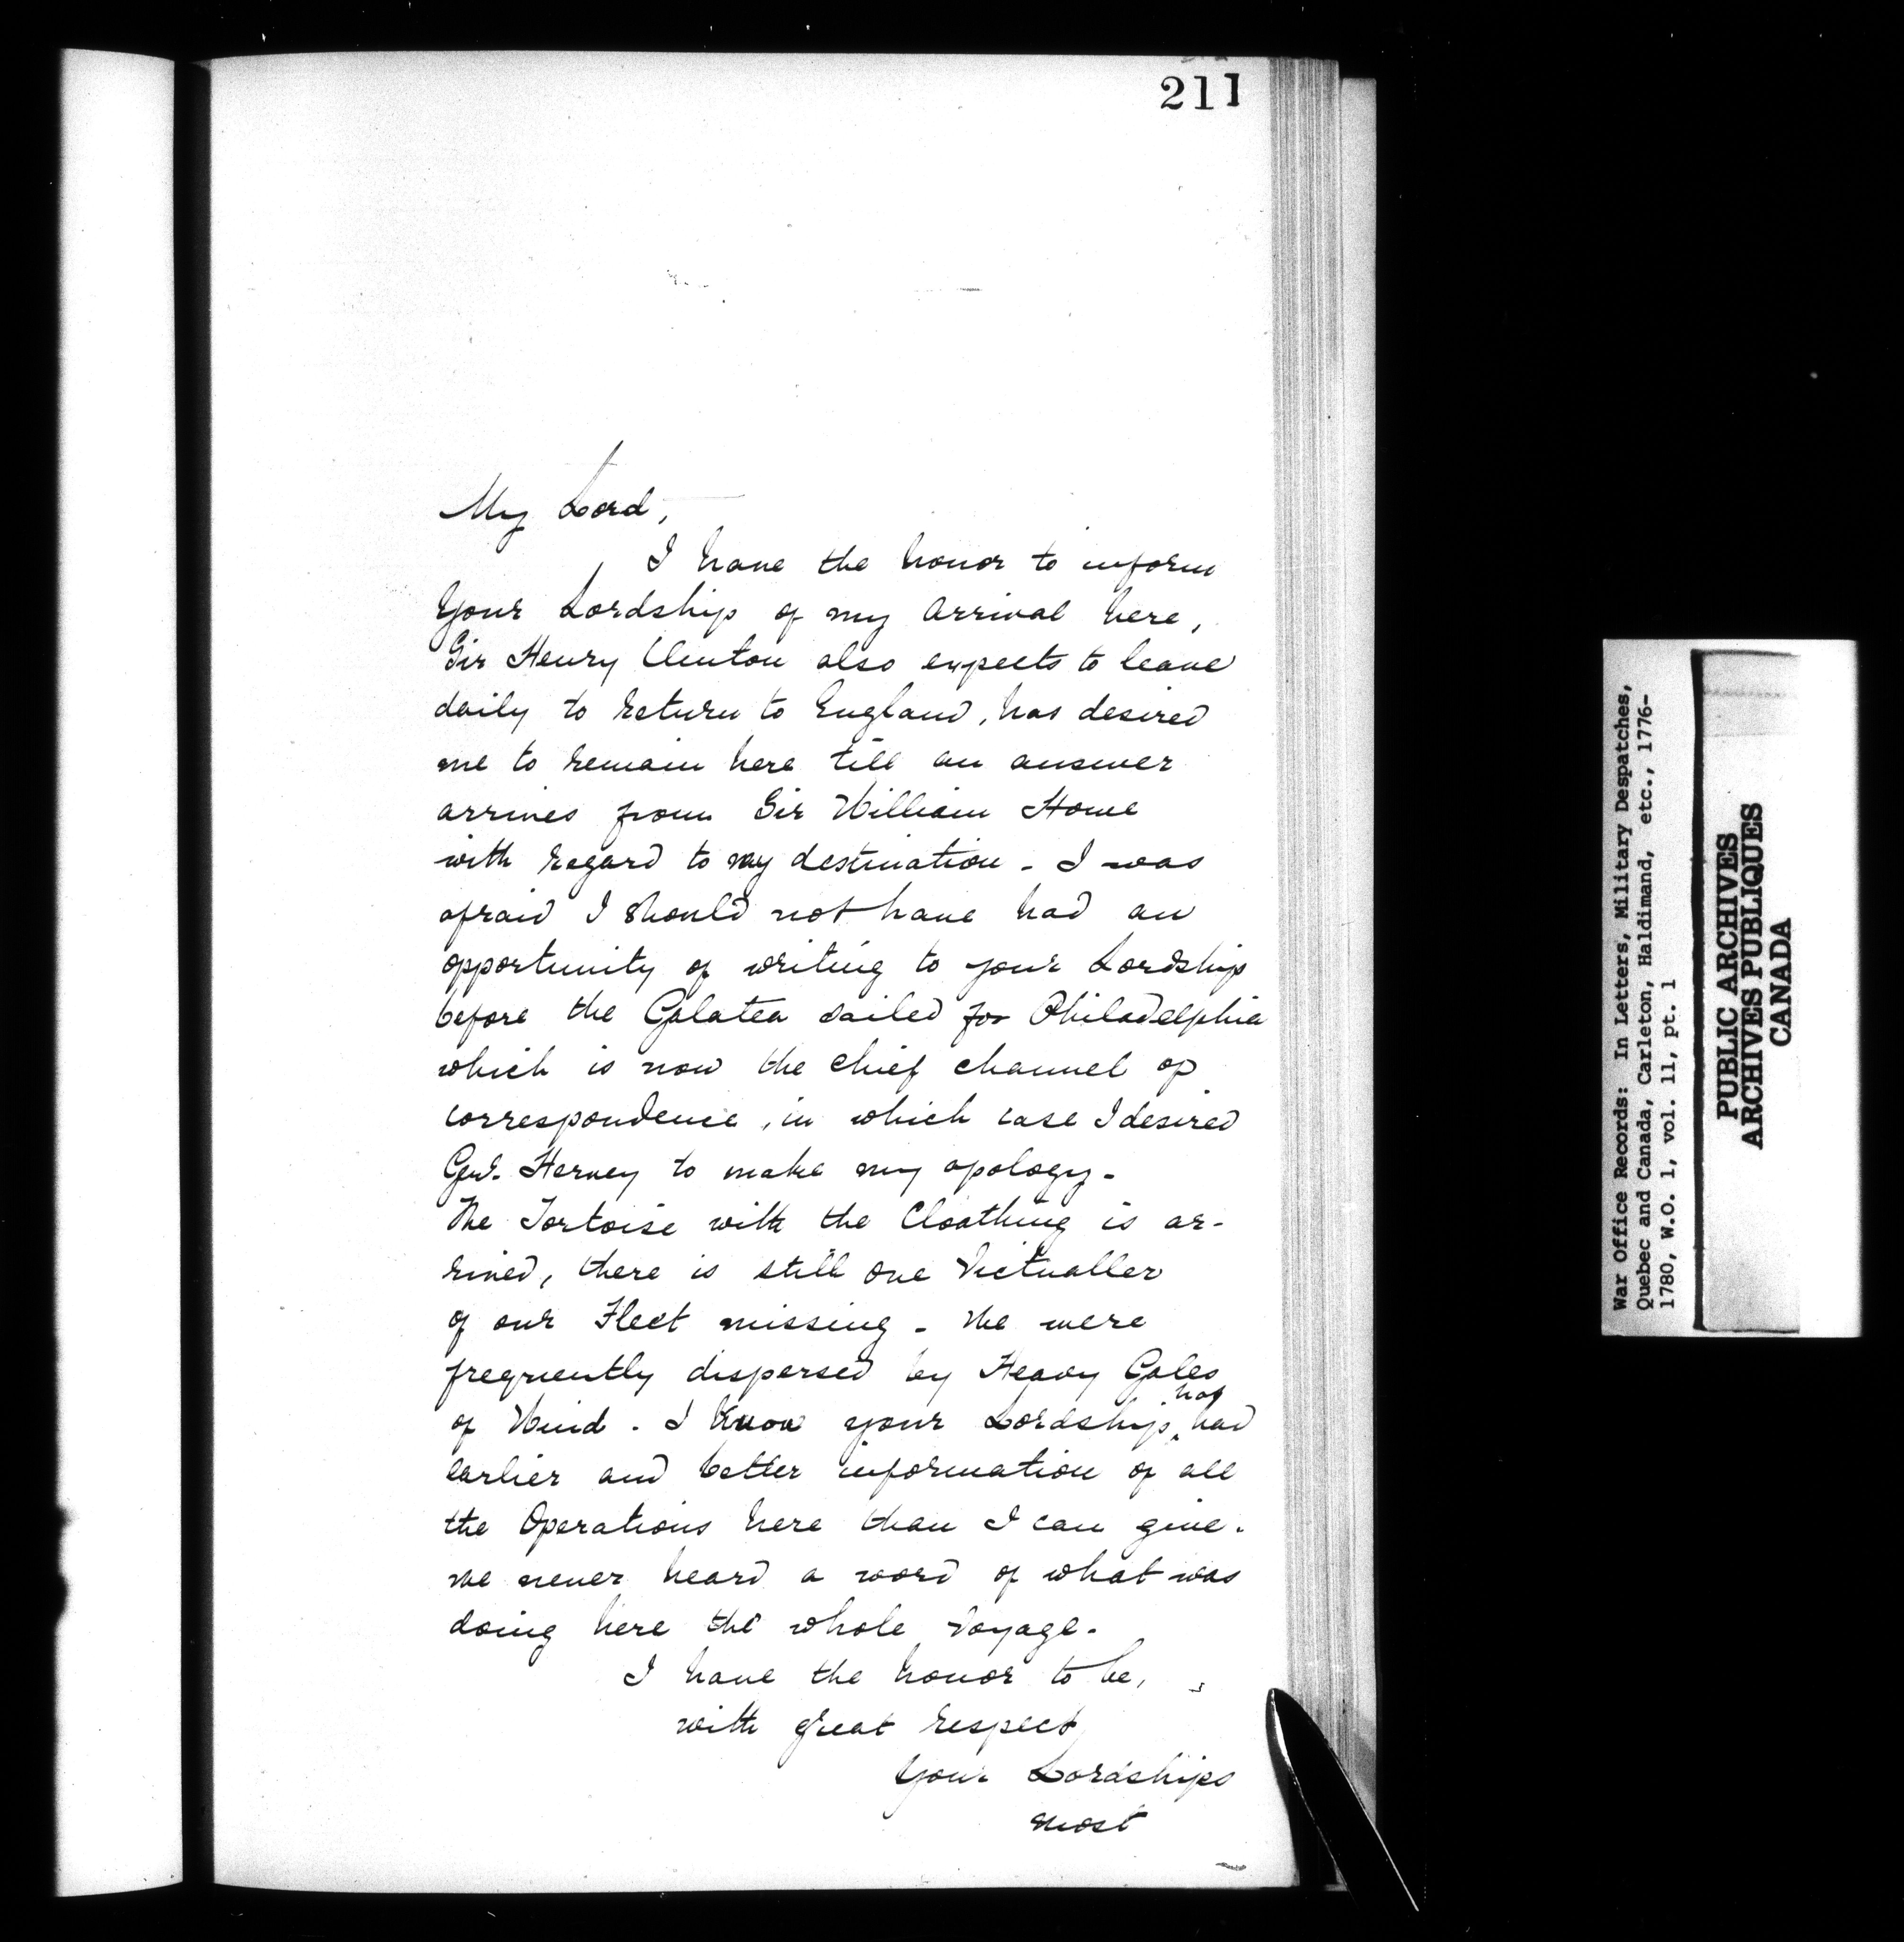 211
My Lord,
I have the honor to inform
Your Lordship of my Arrival here,
Sir Henry Clinton also expects to leave
daily to return to England, has desired
me to remain here till an answer
arrives from Sir William Howe
with regard to my destination - I was
afraid I should not have had an
opportunity of writing to your Lordship
before the Galatea sailed for Philadelphia
which is now the chief channel of
correspondence, in which case I desired
Genl. Harvey to make my apology -
The Tortoise with the Cloathing is ar-
rived, there is still one Victualler
of our Fleet missing - We were
frequently dispersed by Heavy Gales
of Wind. I know your Lordship has had
earlier and better information of all
the Operations here than I can give.
We never heard a word of what was
doing here the whole Voyage.
I have the honor to be,
with great respect,
Your Lordships
most
War Office Records: In Letters, Military Despatches,
Quebec and Canada, Carleton, Haldimand, etc., 1776-
1780, W.O. 1, vol. 11, pt. 1
PUBLIC ARCHIVES
ARCHIVES PUBLIQUES
CANADA